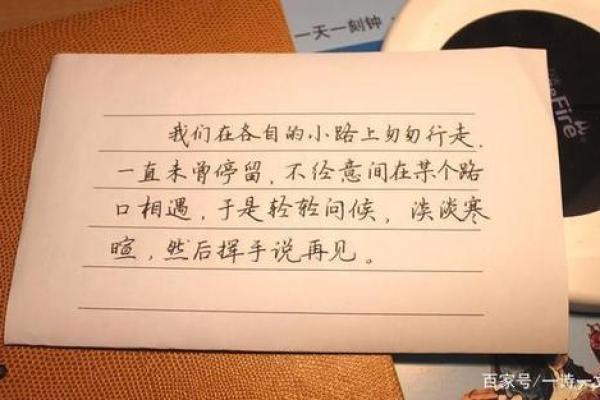 一天一刻钟
Fire
我们在各自的小路上匆匆行走,
一直未曾停留,不经意间在某个路
口相遇,于是轻轻问候,淡淡寒
暄,然后挥手说再见。
百家号/一诗一文